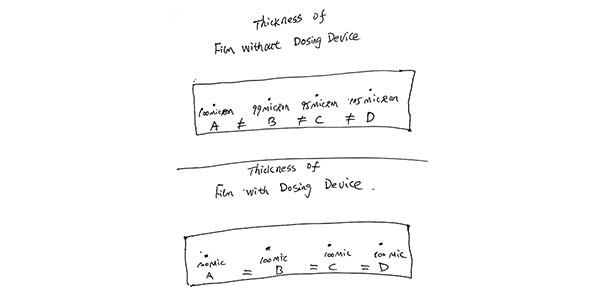 Thickness of
Film without Dosing Device
100micron 99micron 95micron 105micron
A ≠ B ≠ C ≠ D
Thickness of
Film with Dosing Device.
100mic 100mic 100mic 100mic
A = B = C = D